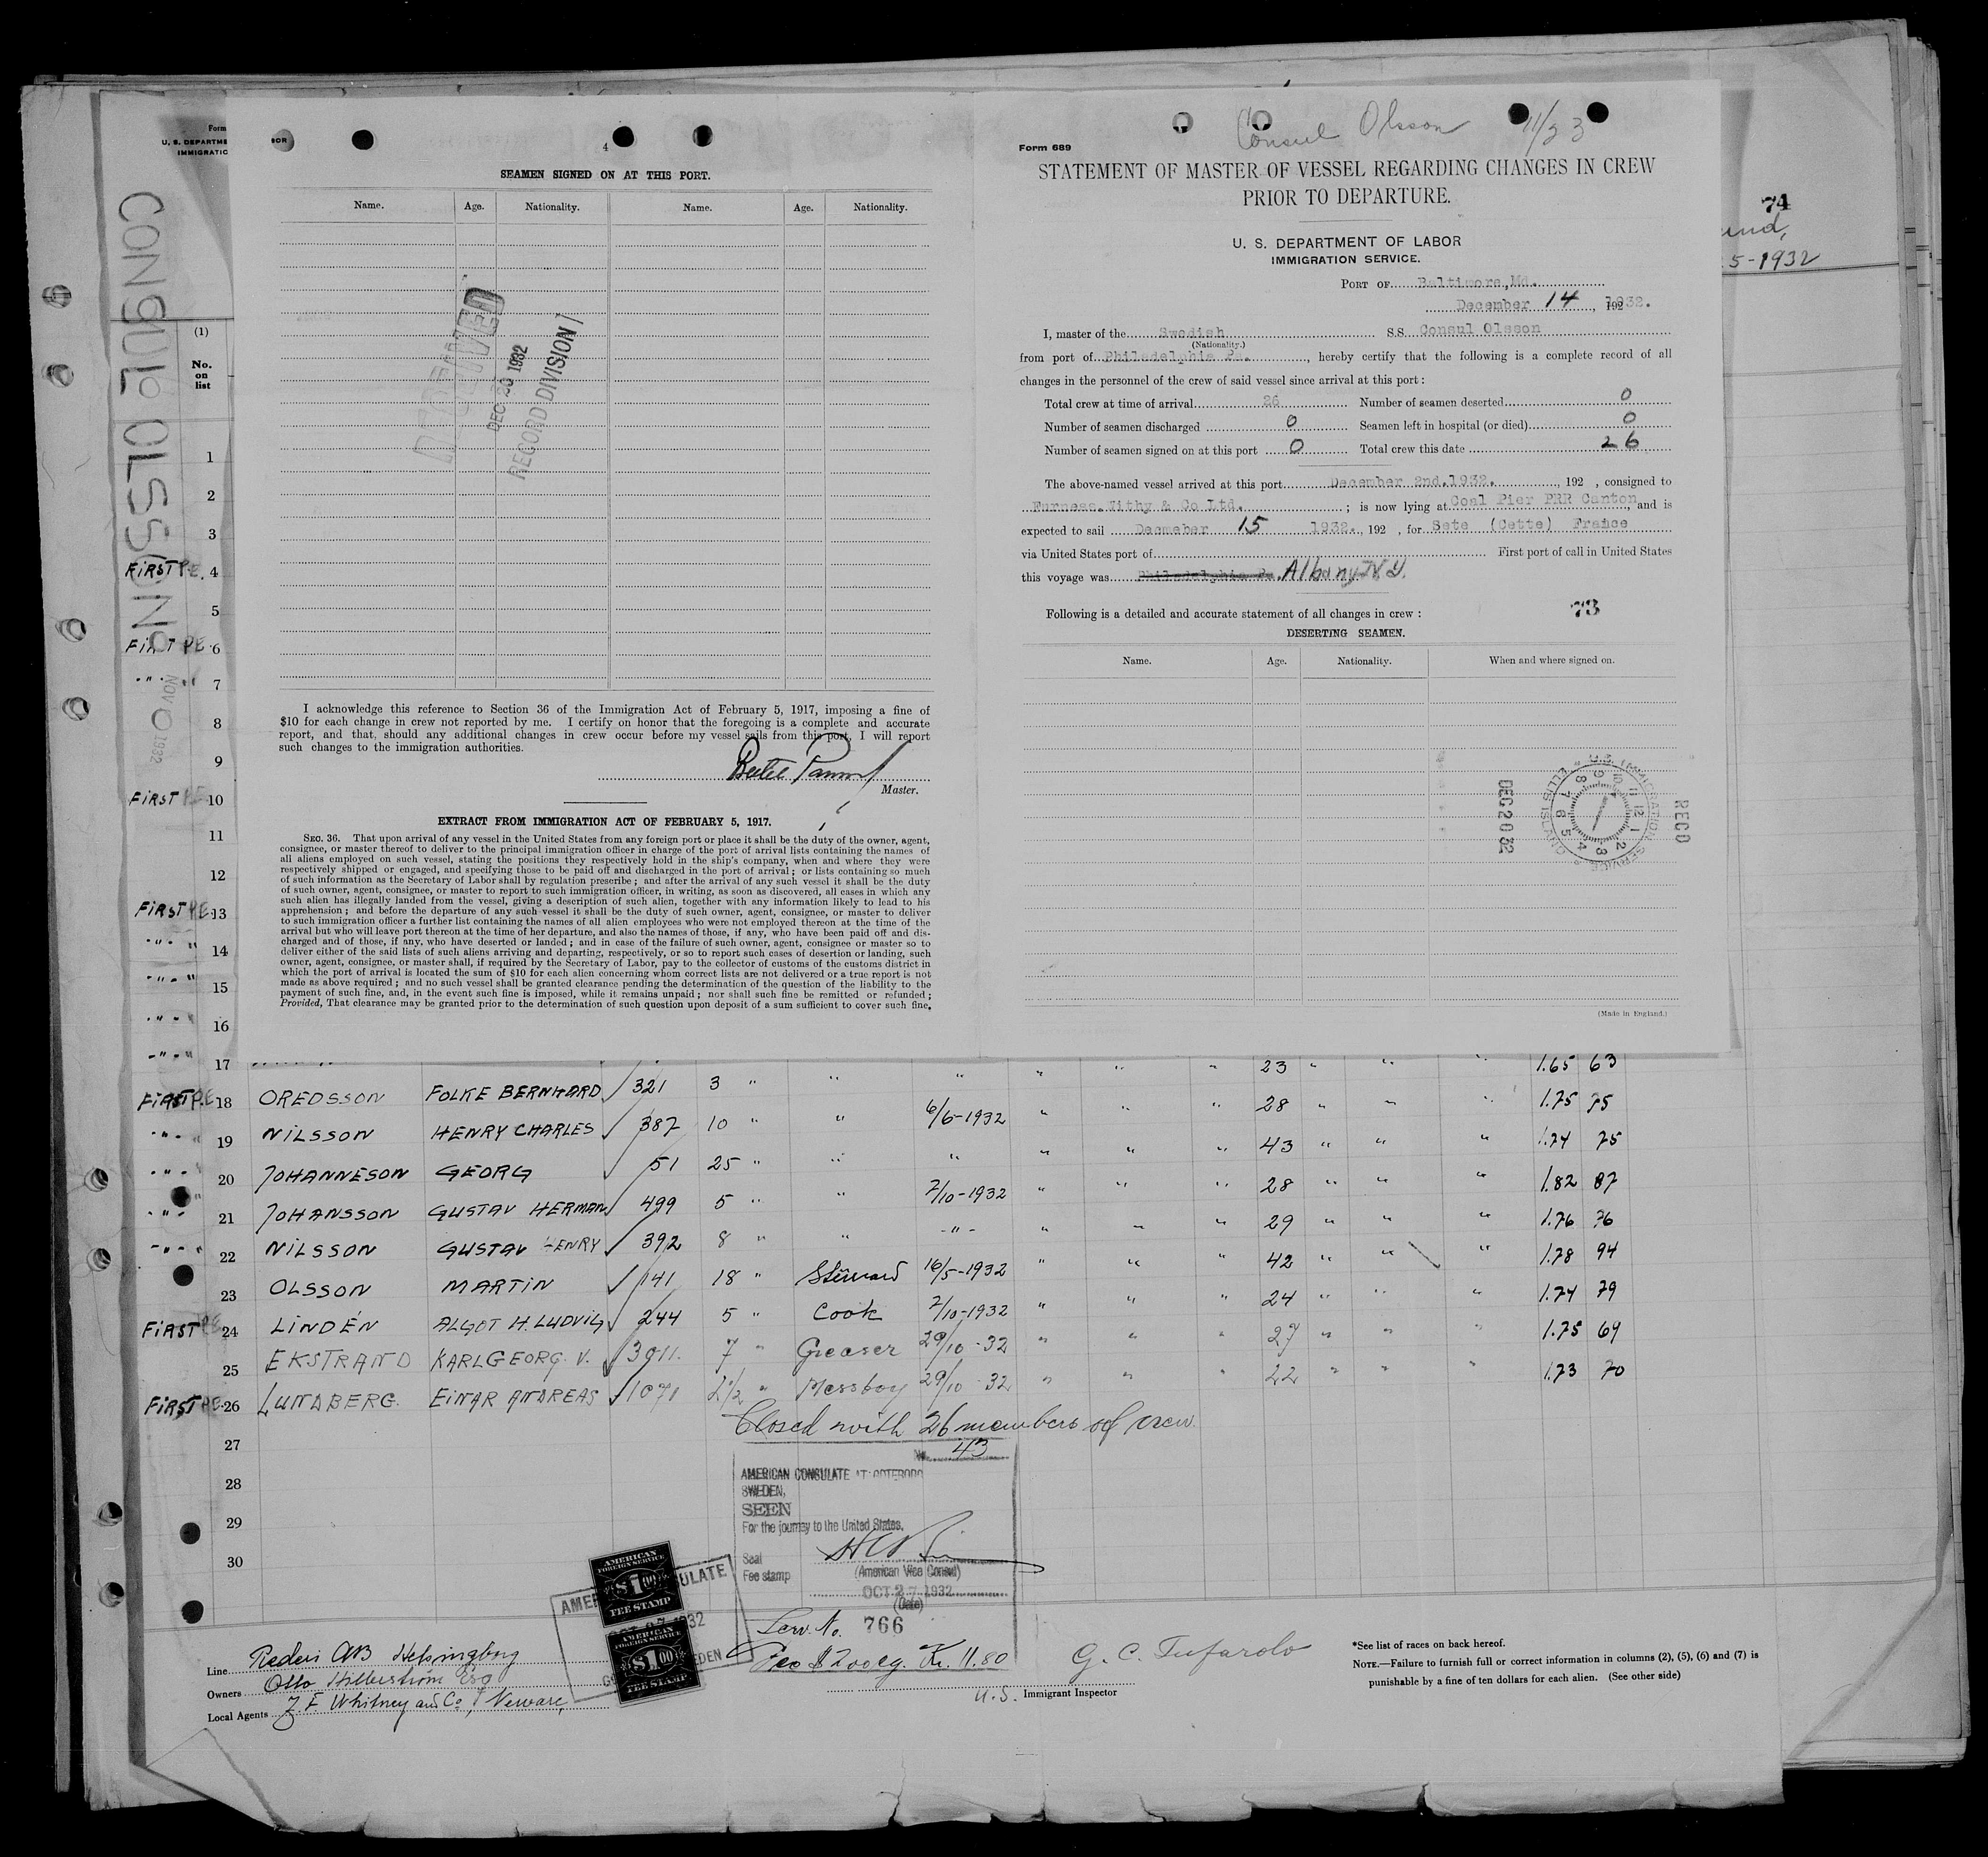 Form
U. S. DEPARTME
IMMIGRATIC
CONSUL OLSSON
NOV 1932
(1)
No.
on
list
1
2
3
FIRST P.E. 4
5
FIRST P.E. 6
" 7
8
9
FIRST P.E. 10
11
12
FIRST P.E. 13
" 14
" 15
" 16
" 17
4
SEAMEN SIGNED ON AT THIS PORT.
Name. Age. Nationality. Name. Age. Nationality.
RECEIVED
DEC 30 1932
RECORD DIVISION
I acknowledge this reference to Section 36 of the Immigration Act of February 5, 1917, imposing a fine of
$10 for each change in crew not reported by me. I certify on honor that the foregoing is a complete and accurate
report, and that, should any additional changes in crew occur before my vessel sails from this port, I will report
such changes to the immigration authorities.
Master.
EXTRACT FROM IMMIGRATION ACT OF FEBRUARY 5, 1917.
SEC. 36. That upon arrival of any vessel in the United States from any foreign port or place it shall be the duty of the owner, agent,
consignee, or master thereof to deliver to the principal immigration officer in charge of the port of arrival lists containing the names of
all aliens employed on such vessel, stating the positions they respectively hold in the ship's company, when and where they were
respectively shipped or engaged, and specifying those to be paid off and discharged in the port of arrival; or lists containing so much
of such information as the Secretary of Labor shall by regulation prescribe; and after the arrival of any such vessel it shall be the duty
of such owner, agent, consignee, or master to report to such immigration officer, in writing, as soon as discovered, all cases in which any
such alien has illegally landed from the vessel, giving a description of such alien, together with any information likely to lead to his
apprehension; and before the departure of any such vessel it shall be the duty of such owner, agent, consignee, or master to deliver
to such immigration officer a further list containing the names of all alien employees who were not employed thereon at the time of the
arrival but who will leave port thereon at the time of her departure, and also the names of those, if any, who have been paid off and dis-
charged and of those, if any, who have deserted or landed; and in case of the failure of such owner, agent, consignee or master so to
deliver either of the said lists of such aliens arriving and departing, respectively, or so to report such cases of desertion or landing, such
owner, agent, consignee, or master shall, if required by the Secretary of Labor, pay to the collector of customs of the customs district in
which the port of arrival is located the sum of $10 for each alien concerning whom correct lists are not delivered or a true report is not
made as above required; and no such vessel shall be granted clearance pending the determination of the question of the liability to the
payment of such fine, and, in the event such fine is imposed, while it remains unpaid; nor shall such fine be remitted or refunded;
Provided, That clearance may be granted prior to the determination of such question upon deposit of a sum sufficient to cover such fine.
Consul Olsson 11/23
Form 689
STATEMENT OF MASTER OF VESSEL REGARDING CHANGES IN CREW
PRIOR TO DEPARTURE.
U. S. DEPARTMENT OF LABOR
IMMIGRATION SERVICE.
PORT OF Baltimore, Md.
December 14, 1932.
I, master of the Swedish S.S. Consul Olsson
(Nationality.)
from port of Philadelphia Pa., hereby certify that the following is a complete record of all
changes in the personnel of the crew of said vessel since arrival at this port:
Total crew at time of arrival 26 Number of seamen deserted 0
Number of seamen discharged 0 Seamen left in hospital (or died) 0
Number of seamen signed on at this port 0 Total crew this date 26
The above-named vessel arrived at this port December 2nd.1932., 192 , consigned to
Furness. Withy & Co Ltd. ; is now lying at Coal Pier PRR Canton, and is
expected to sail Decmeber 15 1932., 192 , for Sete (Cette) France
via United States port of First port of call in United States
this voyage was Philadelphia Pa. Albany N.Y.
Following is a detailed and accurate statement of all changes in crew: 73
DESERTING SEAMEN.
Name. Age. Nationality. When and where signed on.
RECD
U.S. IMMIGRATION SERVICE ELLIS ISLAND
DEC 20 32
(Made in England.)
74
und,
5-1932
23 " " " 1.65 63
FIRST P.E. 18 OREDSSON FOLKE BERNHARD 321 3 " " " " " " 28 " " " 1.75 75
" 19 NILSSON HENRY CHARLES 387 10 " " 6/6-1932 " " " 43 " " " 1.74 75
" 20 JOHANNESON GEORG 51 25 " " " " " " 28 " " " 1.82 87
" 21 JOHANSSON GUSTAV HERMAN 499 5 " " 7/10-1932 " " " 29 " " " 1.76 76
" 22 NILSSON GUSTAV HENRY 392 8 " " " " " " 42 " " " 1.78 94
23 OLSSON MARTIN 141 18 " Steward 16/5-1932 " " " 24 " " " 1.74 79
FIRST P.E. 24 LINDÉN ALGOT H. LUDVIG 244 5 " Cook 7/10-1932 " " " 27 " " " 1.75 69
25 EKSTRAND KARL GEORG. V. 3911. 7 " Greaser 29/10-32 " " " 22 " " " 1.73 70
FIRST P.E. 26 LUNDBERG. EINAR ANDREAS 1071 2½ " Messboy 29/10 32
Closed with 26 members of crew.
27
28
29
30
No. 43
AMERICAN CONSULATE AT GOTEBORG
SWEDEN,
SEEN
For the journey to the United States.
Seal
Fee stamp
(American Vice Consul)
OCT 27 1932
(Date)
AMERICAN
FOREIGN SERVICE
$1.00
FEE STAMP
AMERICAN
FOREIGN SERVICE
$1.00
FEE STAMP
Serv. No. 766
Fee $2.00 eq. Kr. 11.80
Line Rederi AB Helsingborg
Owners Otto Hillerström Esq
Local Agents J. F. Whitney and Co., Newark,
G. C. Tufarolo
U.S. Immigrant Inspector
*See list of races on back hereof.
NOTE.—Failure to furnish full or correct information in columns (2), (5), (6) and (7) is
punishable by a fine of ten dollars for each alien. (See other side)